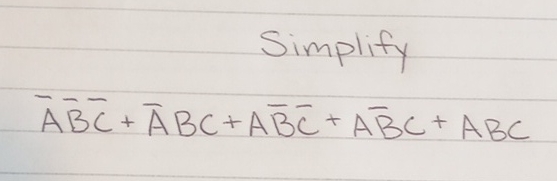 Simplify
A̅B̅C̅ + A̅BC + AB̅C̅ + AB̅C + ABC